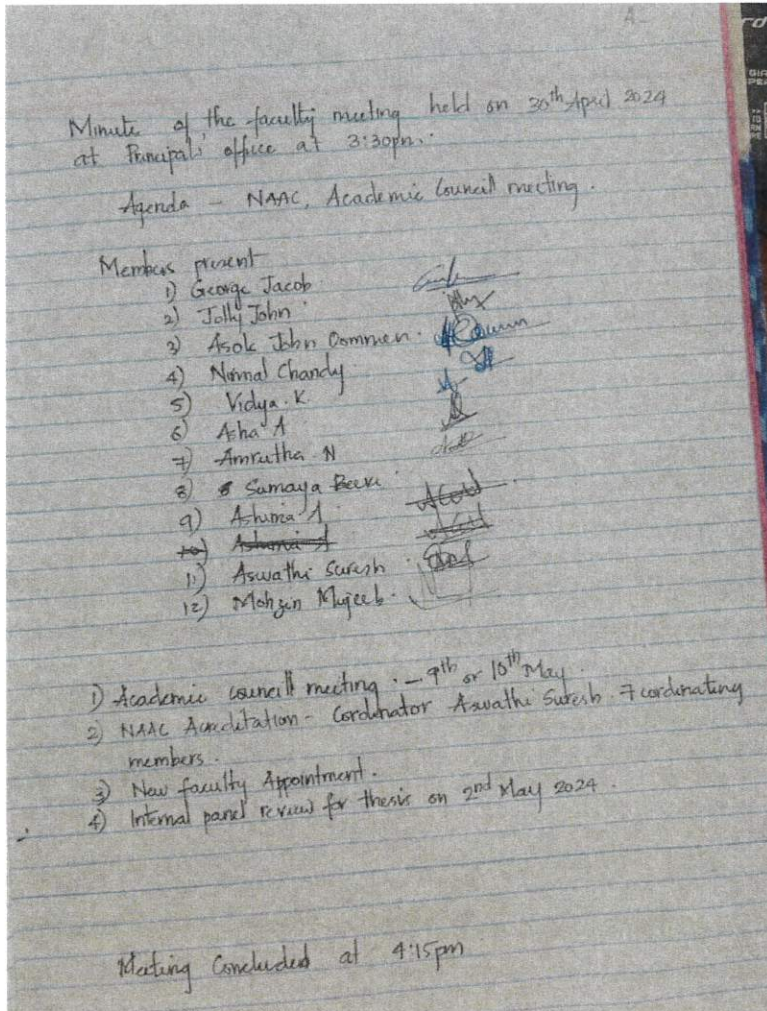 A-
Minute of the faculty meeting held on 30th April 2024
at Principals office at 3:30pm.
Agenda - NAAC, Academic Council meeting.
Members present
1) George Jacob
2) Jolly John
3) Asok John Oommen.
4) Nirmal Chandy
5) Vidya. K
6) Asha A
7) Amrutha N
8) Sumaya Beevi
9) Ashima A
10) Ashima A
11) Aswathi Suresh
12) Mohzin Mujeeb.
1) Academic council meeting. - 9th or 10th May.
2) NAAC Acreditation - Cordinator Aswathi Suresh. 7 cordinating
members.
3) New faculty Appointment.
4) Internal panel review for thesis on 2nd May 2024.
Meeting Concluded at 4:15pm